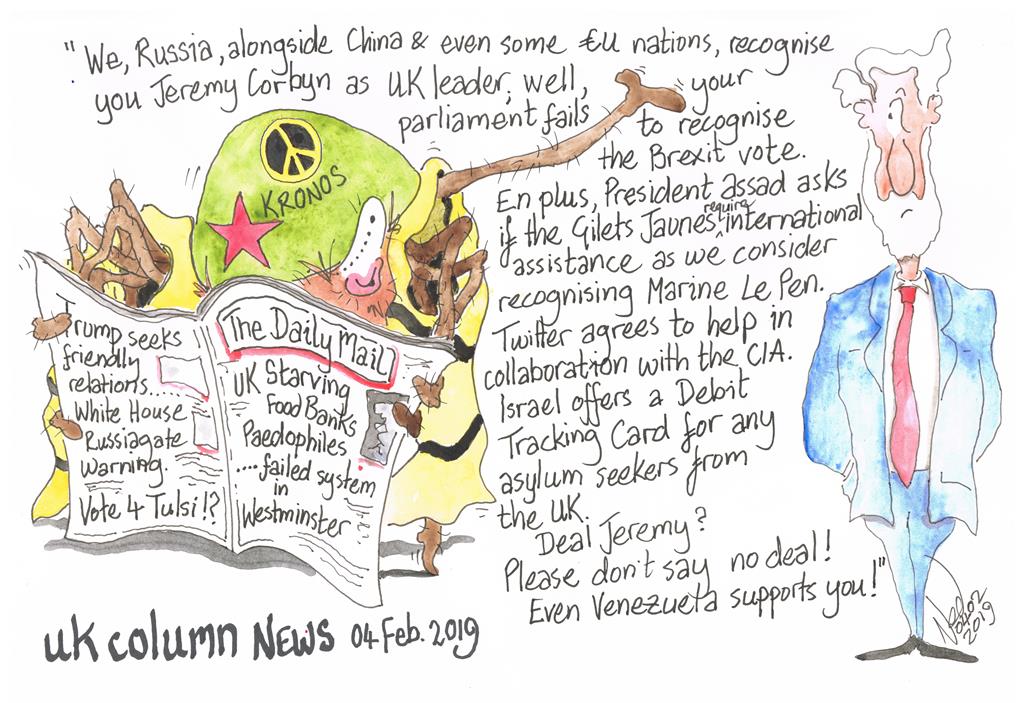 "We, Russia, alongside China & even some €U nations, recognise
you Jeremy Corbyn as UK leader, well, your
parliament fails to recognise
the Brexit vote.
En plus, President assad asks
if the Gilets Jaunes require international
assistance as we consider
recognising Marine Le Pen.
Twitter agrees to help in
collaboration with the CIA.
Israel offers a Debit
Tracking Card for any
asylum seekers from
the UK.
Deal Jeremy?
Please don't say no deal!
Even Venezuela supports you!"
KRONOS
Trump seeks
friendly
relations....
White House
Russiagate
warning.
Vote 4 Tulsi!?
The Daily Mail
UK Starving
Food Banks
Paedophiles
....failed system
in
Westminster
uk column NEWS 04 Feb. 2019
2019